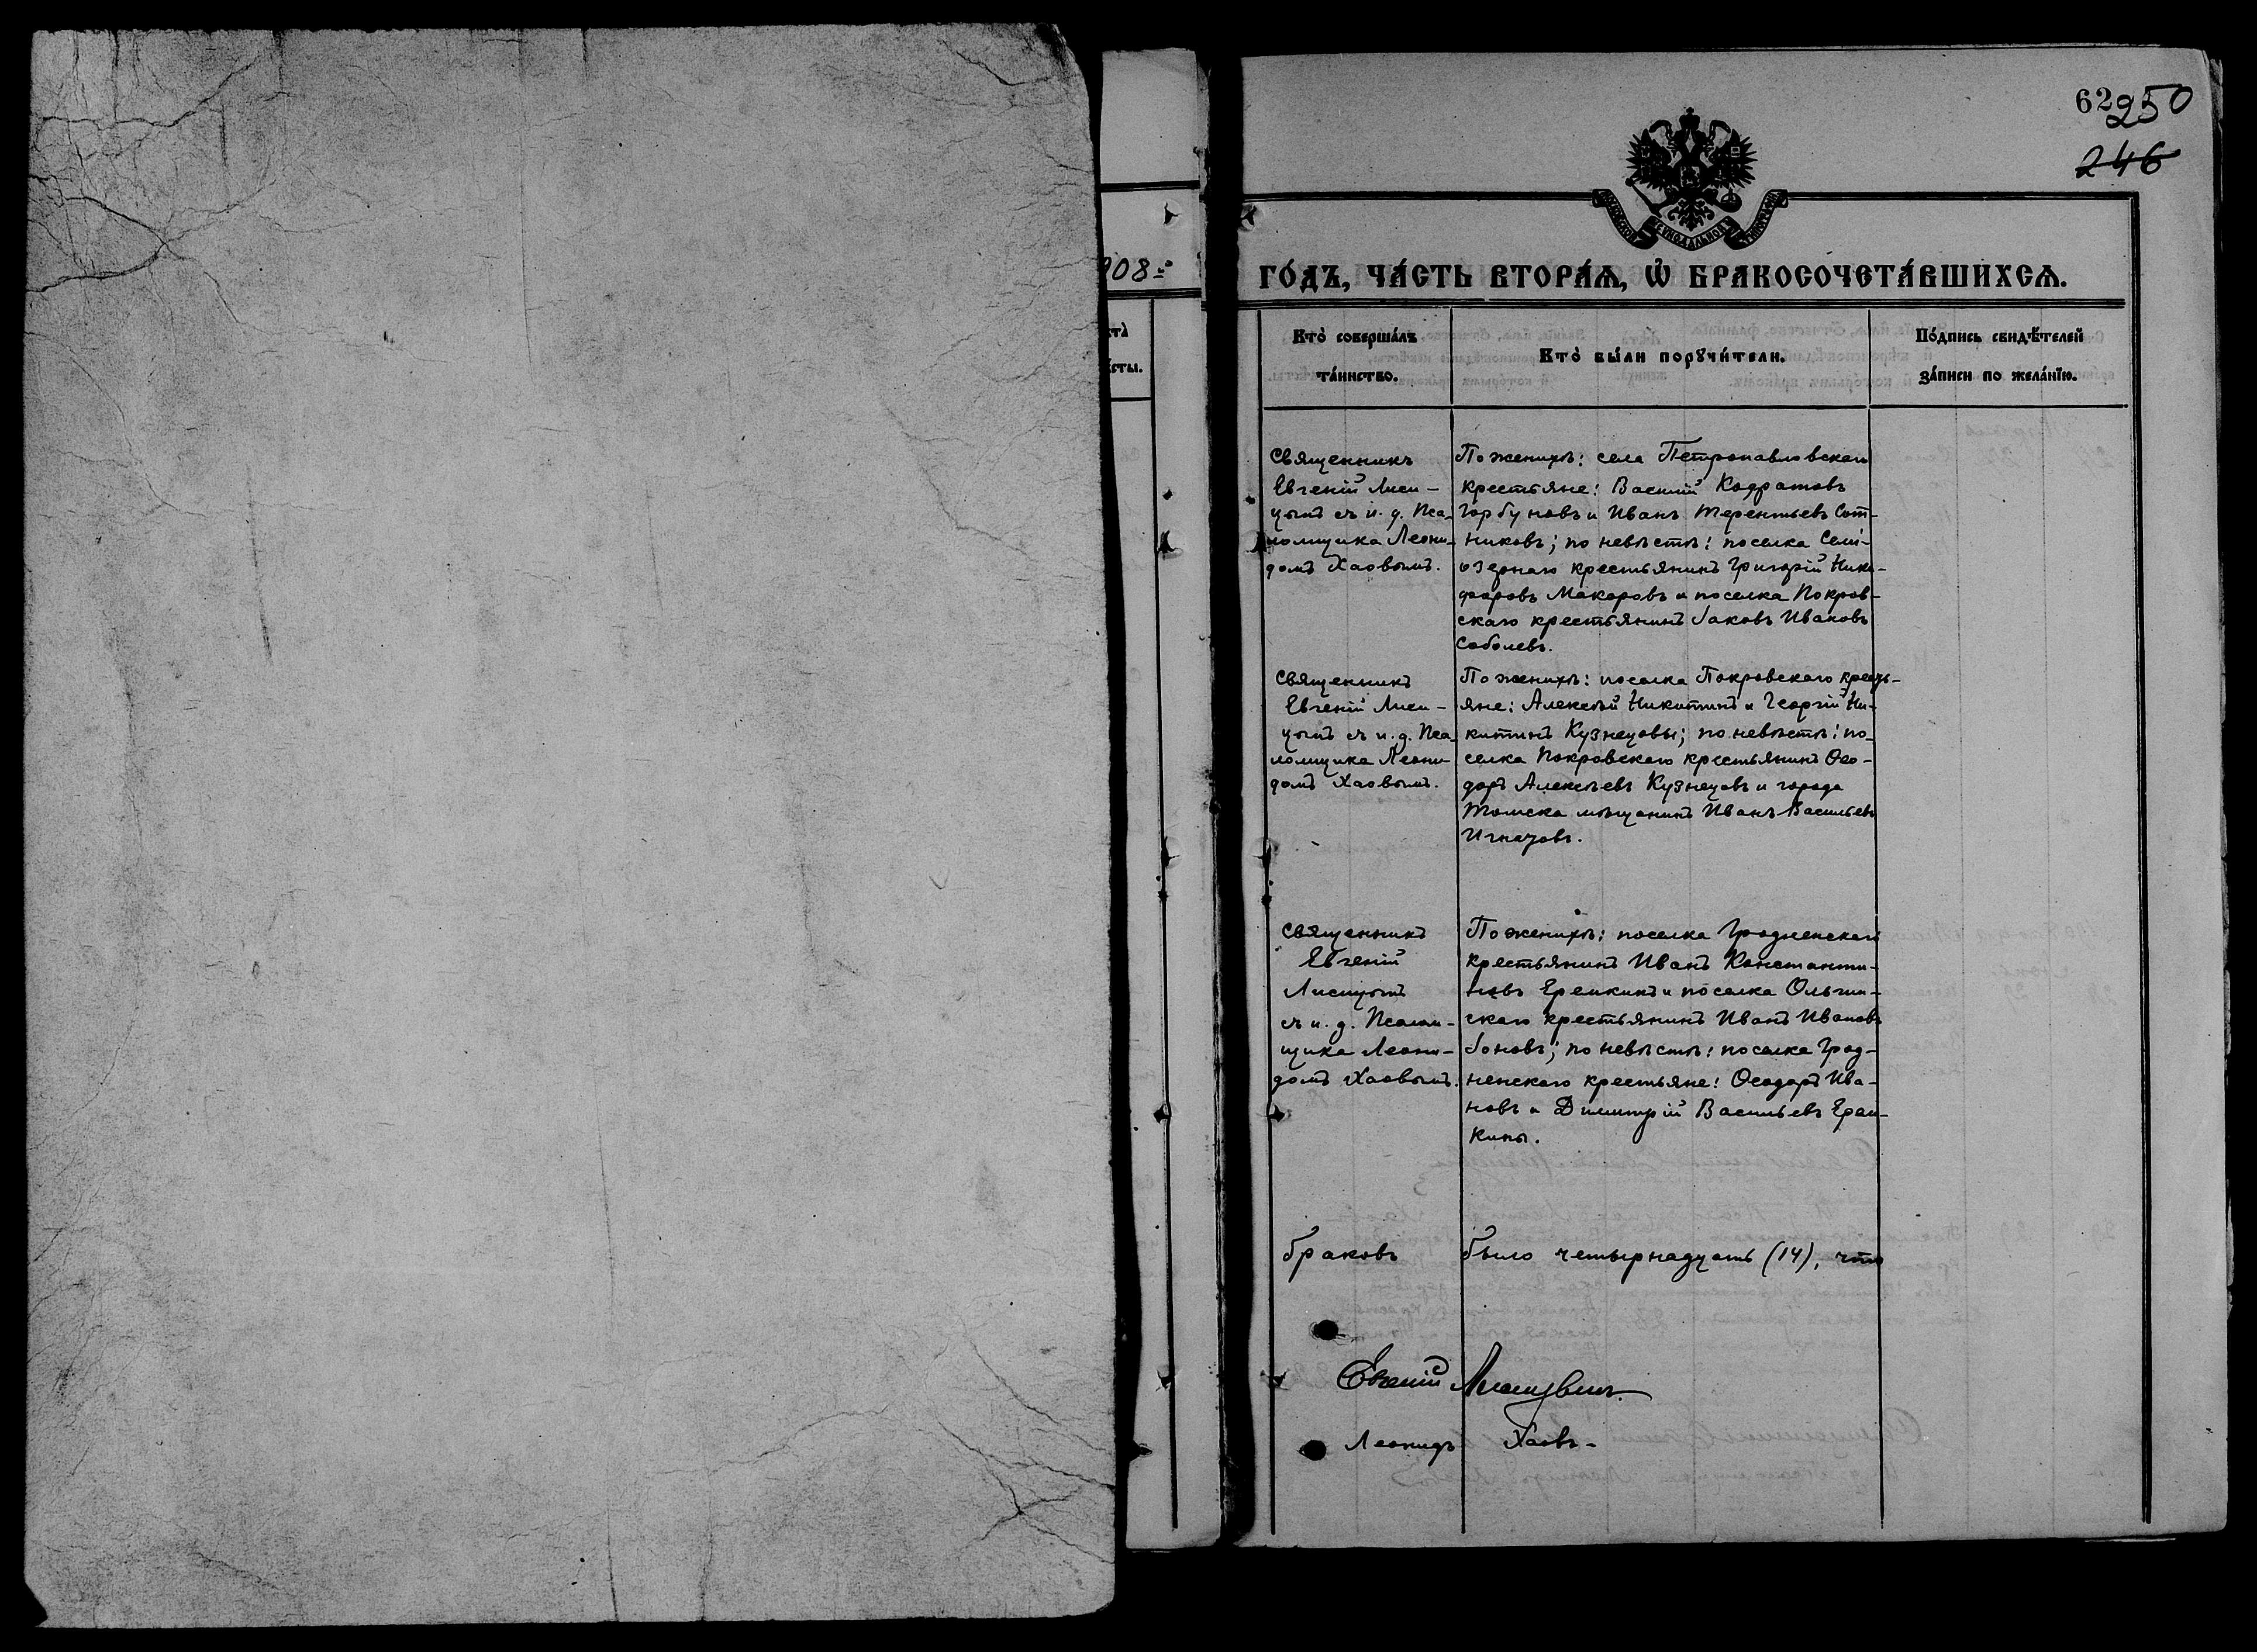 62
250
246
908
ГО́ДЪ, ЧА́СТЬ ВТОРА́Ѧ, Ѡ҆ БРАКОСОЧЕТА́ВШИХСѦ.
Кто̀ соверша́лъ
та́инство.
Кто̀ бы́ли порꙋчи́тели.
По́дпись свидѣ́телей
за́писи по жела́нїю.
Священникъ
Евгеній Лиси-
цынъ съ и. д. Пса-
ломщика Леони-
домъ Хаовымъ.
По женихѣ: села Петропавловскаго
крестьяне: Василій Кодратовъ
Горбуновъ и Иванъ Терентьевъ Сот-
никовъ; по невѣстѣ: поселка Семи-
озернаго крестьянинъ Григорій Ники-
форовъ Макаровъ и поселка Покров-
скаго крестьянинъ Іаковъ Ивановъ
Соболевъ.
Священникъ
Евгеній Лиси-
цынъ съ и. д. Пса-
ломщика Леони-
домъ Хаовымъ.
По женихѣ: поселка Покровскаго кресть-
яне: Алексѣй Никитинъ и Георгій Ни-
китинъ Кузнецовы; по невѣстѣ: по-
селка Покровскаго крестьянинъ Ѳео-
доръ Алексѣевъ Кузнецовъ и города
Томска мѣщанинъ Иванъ Васильевъ
Священникъ
Евгеній
Лисицынъ
съ и. д. Псалом-
щика Леони-
домъ Хаовымъ.
По женихѣ: поселка Гродненскаго
крестьянинъ Иванъ Константи-
новъ Еремкинъ и поселка Ольгин-
скаго крестьянинъ Иванъ Ивановъ
Іоновъ; по невѣстѣ: поселка Грод-
ненскаго крестьяне: Ѳеодоръ Ива-
новъ и Димитрій Васильевъ Ерем-
кины.
браковъ было четырнадцать (14), что
Евгеній Лисицынъ.
Леонидъ Хаовъ-